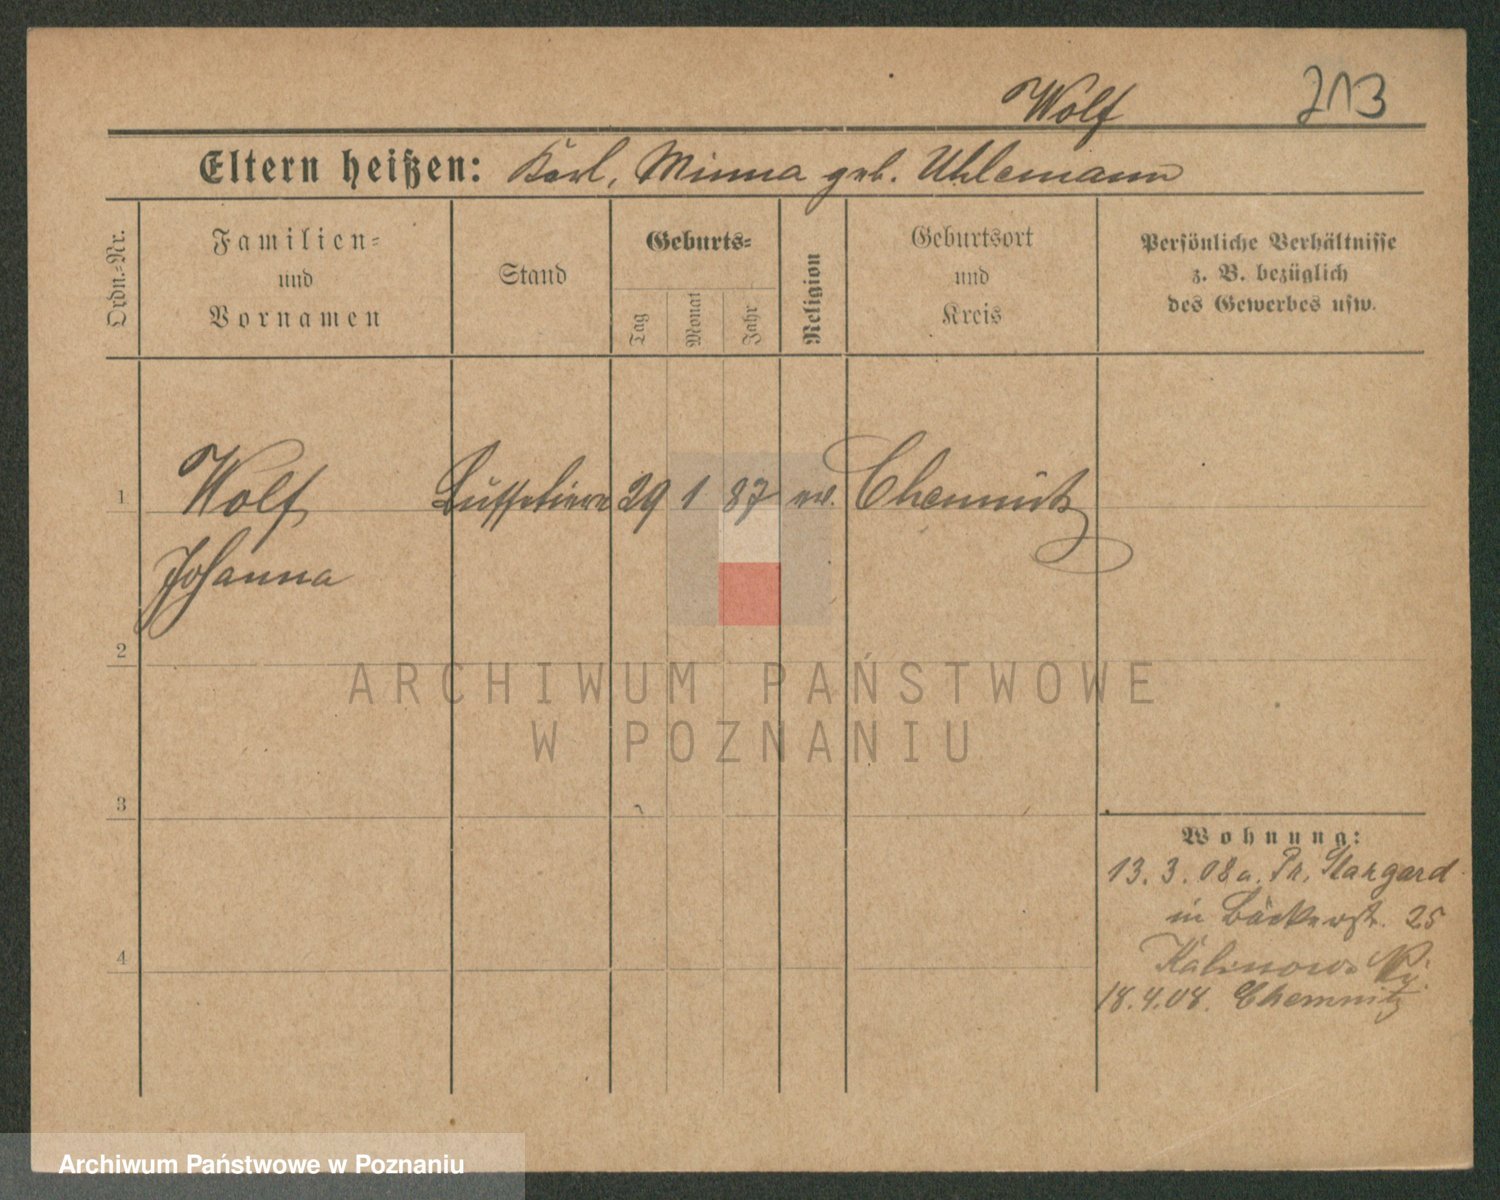 Wolf 213
Eltern heißen: Karl, Minna geb. Uhlemann
Ordn.-Nr.
Familien-
und
Vornamen
Stand
Geburts-
Tag
Monat
Jahr
Religion
Geburtsort
und
Kreis
Persönliche Verhältnisse
z. B. bezüglich
des Gewerbes usw.
1 Wolf Büffetiere 29 1 87 ev. Chemnitz
Johanna
2
ARCHIWUM PAŃSTWOWE
W POZNANIU
3
Wohnung:
13. 3. 08 a. Pr. Stargard
in Bäckerstr. 25
4
18.4.08. Chemnitz
Archiwum Państwowe w Poznaniu